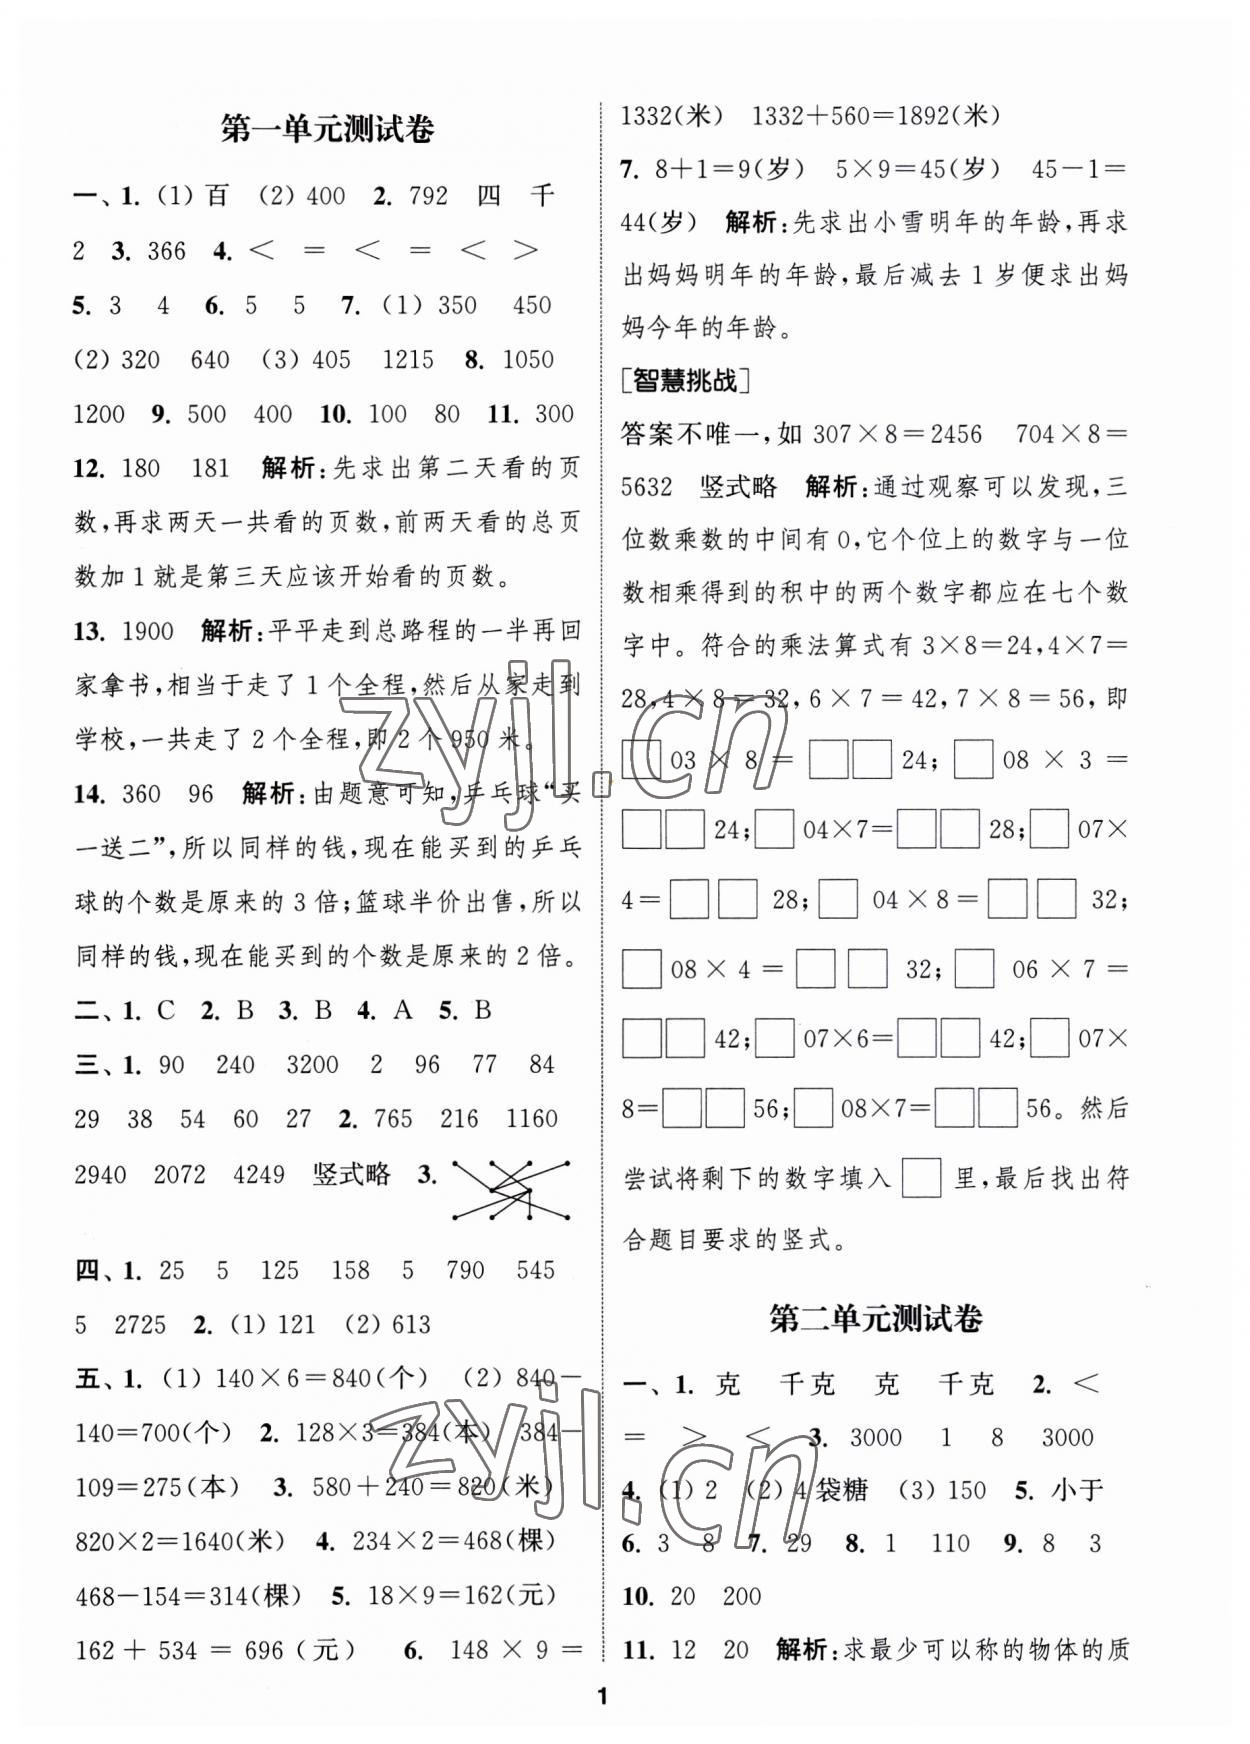 第一单元测试卷
一、1. (1)百 (2)400 2. 792 四 千
2 3. 366 4. < = < = < >
5. 3 4 6. 5 5 7. (1)350 450
(2)320 640 (3)405 1215 8. 1050
1200 9. 500 400 10. 100 80 11. 300
12. 180 181 解析:先求出第二天看的页
数,再求两天一共看的页数,前两天看的总页
数加1就是第三天应该开始看的页数。
13. 1900 解析:平平走到总路程的一半再回
家拿书,相当于走了1个全程,然后从家走到
学校,一共走了2个全程,即2个950米。
14. 360 96 解析:由题意可知,乒乓球“买
一送二”,所以同样的钱,现在能买到的乒乓
球的个数是原来的3倍;篮球半价出售,所以
同样的钱,现在能买到的个数是原来的2倍。
二、1. C 2. B 3. B 4. A 5. B
三、1. 90 240 3200 2 96 77 84
29 38 54 60 27 2. 765 216 1160
2940 2072 4249 竖式略 3.
四、1. 25 5 125 158 5 790 545
5 2725 2. (1)121 (2)613
五、1. (1)140×6=840(个) (2)840-
140=700(个) 2. 128×3=384(本) 384-
109=275(本) 3. 580+240=820(米)
820×2=1640(米) 4. 234×2=468(棵)
468-154=314(棵) 5. 18×9=162(元)
162+534=696(元) 6. 148×9=
1332(米) 1332+560=1892(米)
7. 8+1=9(岁) 5×9=45(岁) 45-1=
44(岁) 解析:先求出小雪明年的年龄,再求
出妈妈明年的年龄,最后减去1岁便求出妈
妈今年的年龄。
[智慧挑战]
答案不唯一,如307×8=2456 704×8=
5632 竖式略 解析:通过观察可以发现,三
位数乘数的中间有0,它个位上的数字与一位
数相乘得到的积中的两个数字都应在七个数
字中。符合的乘法算式有3×8=24,4×7=
28,4×8=32,6×7=42,7×8=56,即
□03×8=□□24;□08×3=
□□24;□04×7=□□28;□07×
4=□□28;□04×8=□□32;
□08×4=□□32;□06×7=
□□42;□07×6=□□42;□07×
8=□□56;□08×7=□□56。然后
尝试将剩下的数字填入□里,最后找出符
合题目要求的竖式。
第二单元测试卷
一、1. 克 千克 克 千克 2. <
= > < 3. 3000 1 8 3000
4. (1)2 (2)4袋糖 (3)150 5. 小于
6. 3 8 7. 29 8. 1 110 9. 8 3
10. 20 200
11. 12 20 解析:求最少可以称的物体的质
1
zyjl.cn
zyjl.cn